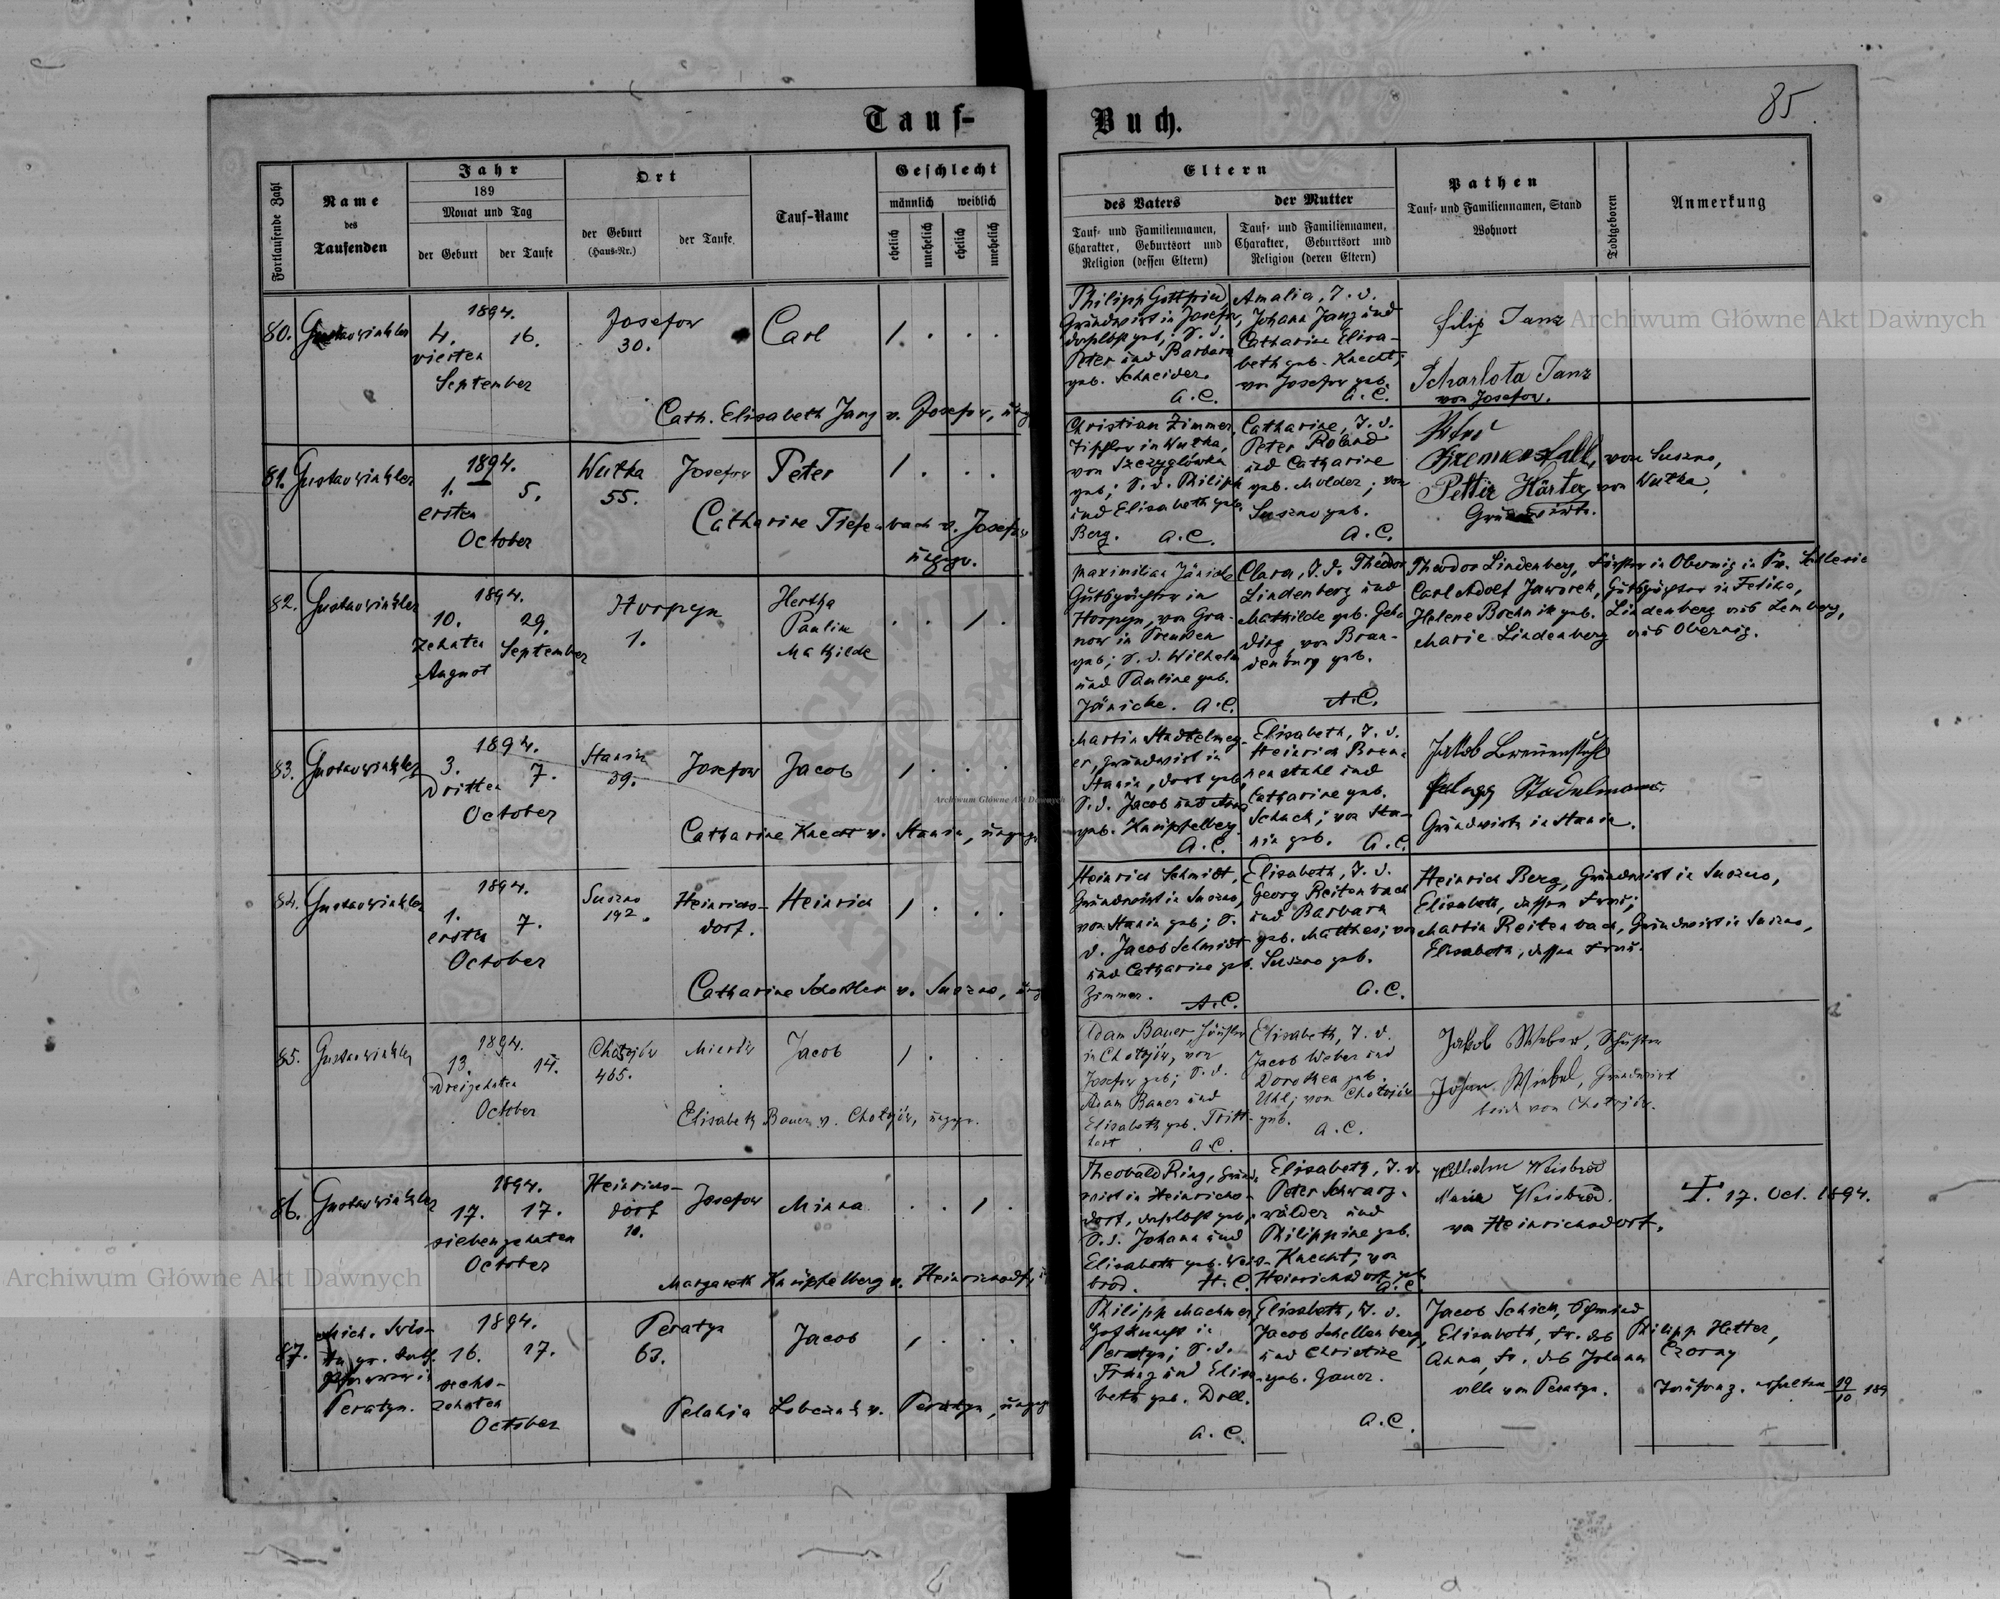 Tauf-Buch.
85
Fortlaufende Zahl
Name
des
Taufenden
Jahr
189
Monat und Tag
der Geburt
der Taufe
Ort
der Geburt
(Haus-Nr.)
der Taufe
Tauf-Name
Geschlecht
männlich
weiblich
ehelich
unehelich
ehelich
unehelich
Eltern
des Vaters
Tauf- und Familiennamen,
Charakter, Geburtsort und
Religion (dessen Eltern)
der Mutter
Tauf- und Familiennamen,
Charakter, Geburtsort und
Religion (deren Eltern)
Pathen
Tauf- und Familiennamen, Stand
Wohnort
Todtgeboren
Anmerkung
80.
Gustav Winkler
1894.
4.
16.
vierten
September
Josefow
30.
Carl
1
Cath. Elisabeth Janz v. Josefow,
Philipp Gottfried,
Grundwirt in Josefow,
daselbst geb., S. d.
Peter und Barbara
geb. Schneider.
A.C.
Amalia, T. d.
Johann Janz und
Catharine Elisa-
beth geb. Knecht;
von Josefow geb.
A.C.
Filip Janz
Scharlota Janz
von Josefow.
81.
Gustav Winkler
1894.
1.
5.
ersten
October
Wutka
55.
Josefow
Peter
1
Catharine Tiefenbach v. Josefow
Christian Zimmer,
in Wutka,
von Szczyglówka
geb; S. d. Philipp
und Elisabeth geb.
Berg. A.C.
Catharine, T. d.
Peter Roland
und Catharine
geb. Molder; von
Suszno geb.
A.C.
von Suszno,
Petter Härter, von Wutka,
Grundwirte.
82.
Gustav Winkler
1894.
10.
29.
zehnten
September
August
Horpyn
1.
Hertha
Pauline
Mathilde
1
Maximilian Jänicke
Gutspächter in
Horpyn, von Gra-
now in Preussen
geb; T. d. Wilhelm
und Pauline geb.
Jänicke. A.C.
Clara, T. d. Theodor
Lindenberg und
Mathilde geb.
von Bran-
denburg geb.
A.C.
Theodor Lindenberg, Förster in Obernig in Pr. Schlesie
Carl Adolf Jaworek, Gutspächter in
Helene Bochnik geb. Lindenberg aus Lemberg,
Marie Lindenberg aus Obernig.
83.
Gustav Winkler
1894.
3.
7.
dritten
October
Stanin
39.
Josefow
Jacob
1
Catharine Knecht v. Stanin,
Martin Stadelmey-
er, Grundwirt in
Stanin, dort geb,
S. d. Jacob und Anna
geb. Knüpfelberg
A.C.
Elisabeth, T. d.
Heinrich Bren-
nenstuhl und
Catharine geb.
Schach; von Sta-
nin geb. A.C.
Jakob Brennenstuhl
Grundwirte in Stanin.
84.
Gustav Winkler
1894.
1.
7.
ersten
October
Suszno
192.
Heinrichs-
dorf.
Heinrich
1
Catharine v. Suszno,
Heinrich Schmidt,
Grundwirt in Suszno,
von Stanin geb; S.
d. Jacob Schmidt
und Catharine geb.
Zimmer. A.C.
Elisabeth, T. d.
Georg Reitenbach
und Barbara
geb. Matthes; von
Suszno geb.
A.C.
Heinrich Berg, Grundwirt in Suszno,
Elisabeth, dessen Frau;
Martin Reitenbach, Grundwirt in Suszno,
Elisabeth, dessen Frau.
85.
Gustav Winkler
1894.
13.
14.
dreizehnten
October
Chołojów
465.
Mierów
Jacob
1
Elisabeth Bauer v. Chołojów,
Adam Bauer,
in Chołojów, von
Josefow geb; S. d.
Adam Bauer und
Elisabeth geb. Tritt-
hart. A.C.
Elisabeth, T. d.
Jacob Weber und
Dorothea geb.
Uhl; von Chołojów
geb.
A.C.
Jakob Weber, Schuster
Johan Winkel, Grundwirt
beide von Chołojów.
86.
Gustav Winkler
1894.
17.
17.
siebenzehnten
October
Heinrichs-
dorf
10.
Josefow
Minna
1
Margareth Knüpfelberg v. Heinrichsdf,
Theobald Ring, Grund-
wirt in Heinrichs-
dorf, daselbst geb,
S. d. Johann und
Elisabeth geb. Weis-
brod. A.C.
Elisabeth, T. d.
Peter Schwarz-
wälder und
Philippine geb.
Knecht, von
Heinrichsdorf geb.
A.C.
Wilhelm Weisbrod
Maria Weisbrod.
von Heinrichsdorf.
†. 17. Oct. 1894.
87.
Peratyn.
1894.
16.
17.
sechs-
zehnten
October
Peratyn
63.
Jacob
1
Pelahia v. Peratyn,
Philipp Machmer,
in
Peratyn; S. d.
Franz und Elisa-
beth geb. Doll.
A.C.
Elisabeth, T. d.
Jacob Schellenberg,
und Christine
geb. Gauer.
A.C.
Jacob Schick,
Elisabeth, Fr. des Philipp Hetter,
Anna, Fr. des Johann Czorny
alle von Peratyn.
19/10 189
Archiwum Główne Akt Dawnych
Archiwum Główne Akt Dawnych
Archiwum Główne Akt Dawnych